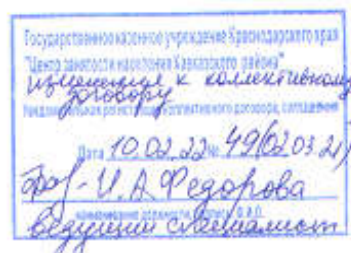 Государственное казенное учреждение Краснодарского края
"Центр занятости населения Кавказского района"
изменения к коллективному
договору
Уведомительная регистрация коллективного договора, соглашения
Дата 10.02.22 № 49(02.03.21)
И.А Федорова
наименование должности, подпись, Ф.И.О.
ведущий специалист